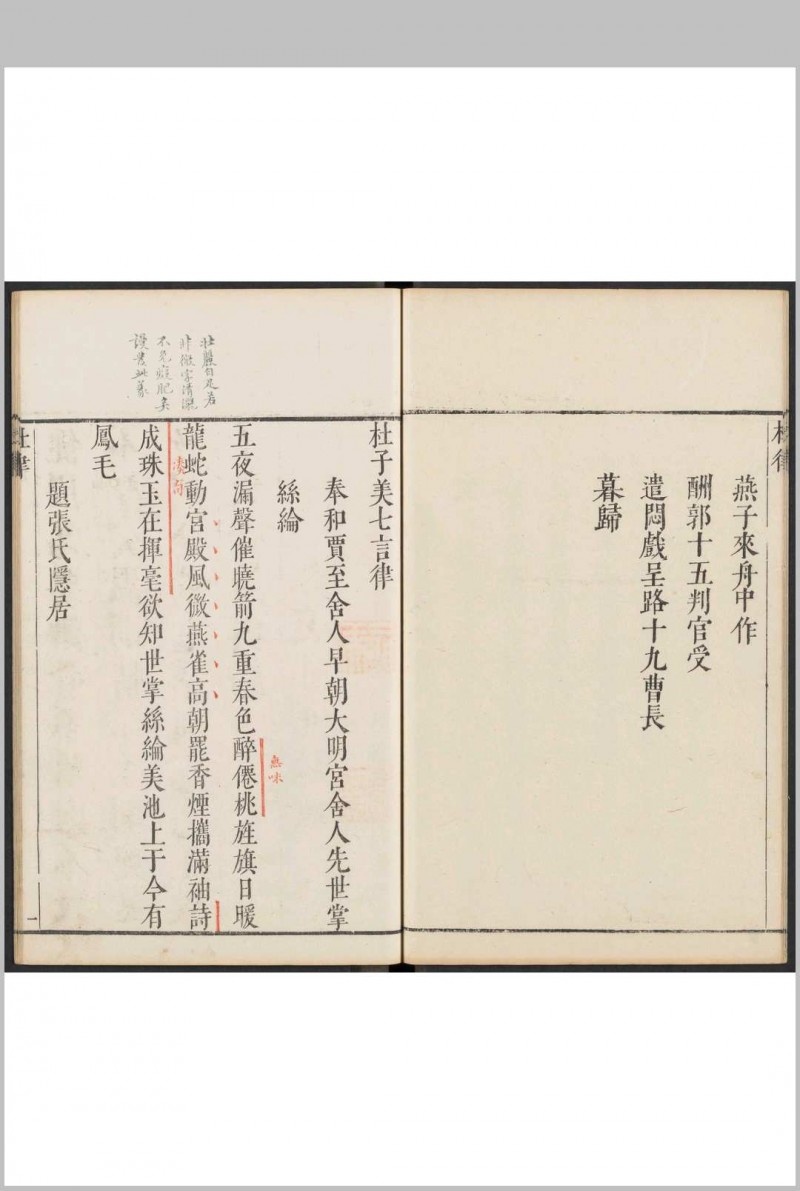 杜律
燕子來舟中作
酬郭十五判官受
遣悶戲呈路十九曹長
暮歸
杜子美七言律
奉和賈至舍人早朝大明宮舍人先世掌
絲綸
五夜漏聲催曉箭九重春色醉僊桃旌旗日暖
龍蛇動宮殿風微燕雀高朝罷香煙攜滿袖詩
成珠玉在揮毫欲知世掌絲綸美池上于今有
鳳毛
題張氏隱居
杜律
一
無味
湊句
壯麗自足若
不免癡肥矣